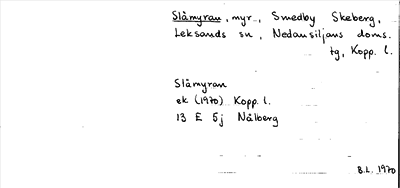 Slåmyran, myr, Smedby Skeberg,
Leksands sn, Nedansiljans doms.
tg, Kopp. l.
Slåmyran
ek (1970) Kopp. l.
13 E 5j Nålberg
B.L. 1970